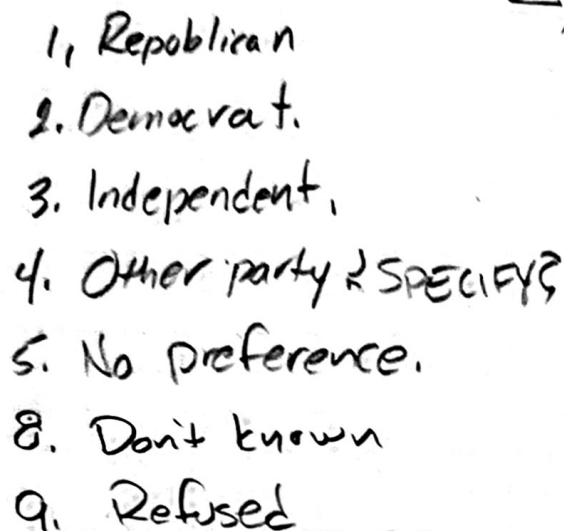 1, Repoblican
2. Democrat.
3. Independent,
4. Other party {SPECIFY}
5. No preference.
8. Don't known
9. Refused